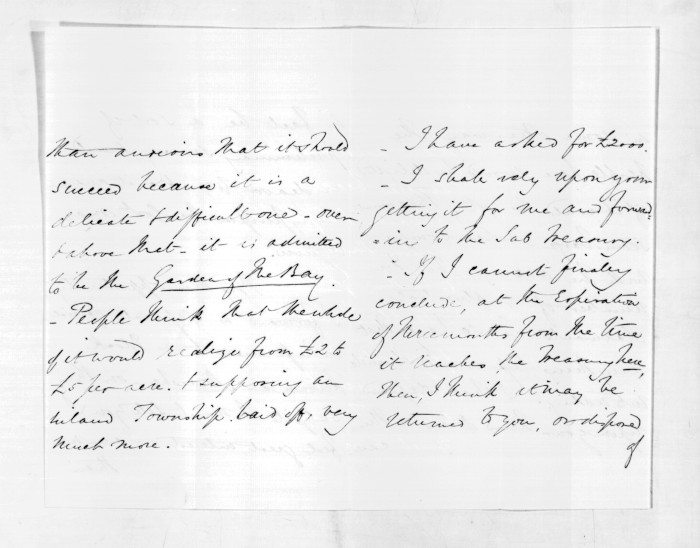 than anxious that it should
succeed because it is a
delicate & difficult one - over
& above that - it is admitted
to be the Garden of the Bay.
- People think that the whole
of it would realize from £2 to
£5 per acre. & supposing an
inland Township laid off, very
much more.
- I have asked for £2000.
- I shall rely upon your
getting it for me and forward=
=ing to the Sub Treasury.
- If I cannot finally
conclude, at the Expiration
of three months from the time
it reaches the Treasury here,
then, I think it may be
returned to you, or disposed
of